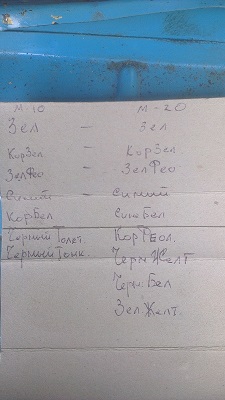 М-10 М-20
Зел — Зел
КорЗел — КорЗел.
ЗелФео — ЗелФео
Синий — Синий
КорБел СинеБел
Черный Толст. КорФеол.
Черный Тонк. Черн.Желт
Черн.Бел
Зел.Желт.